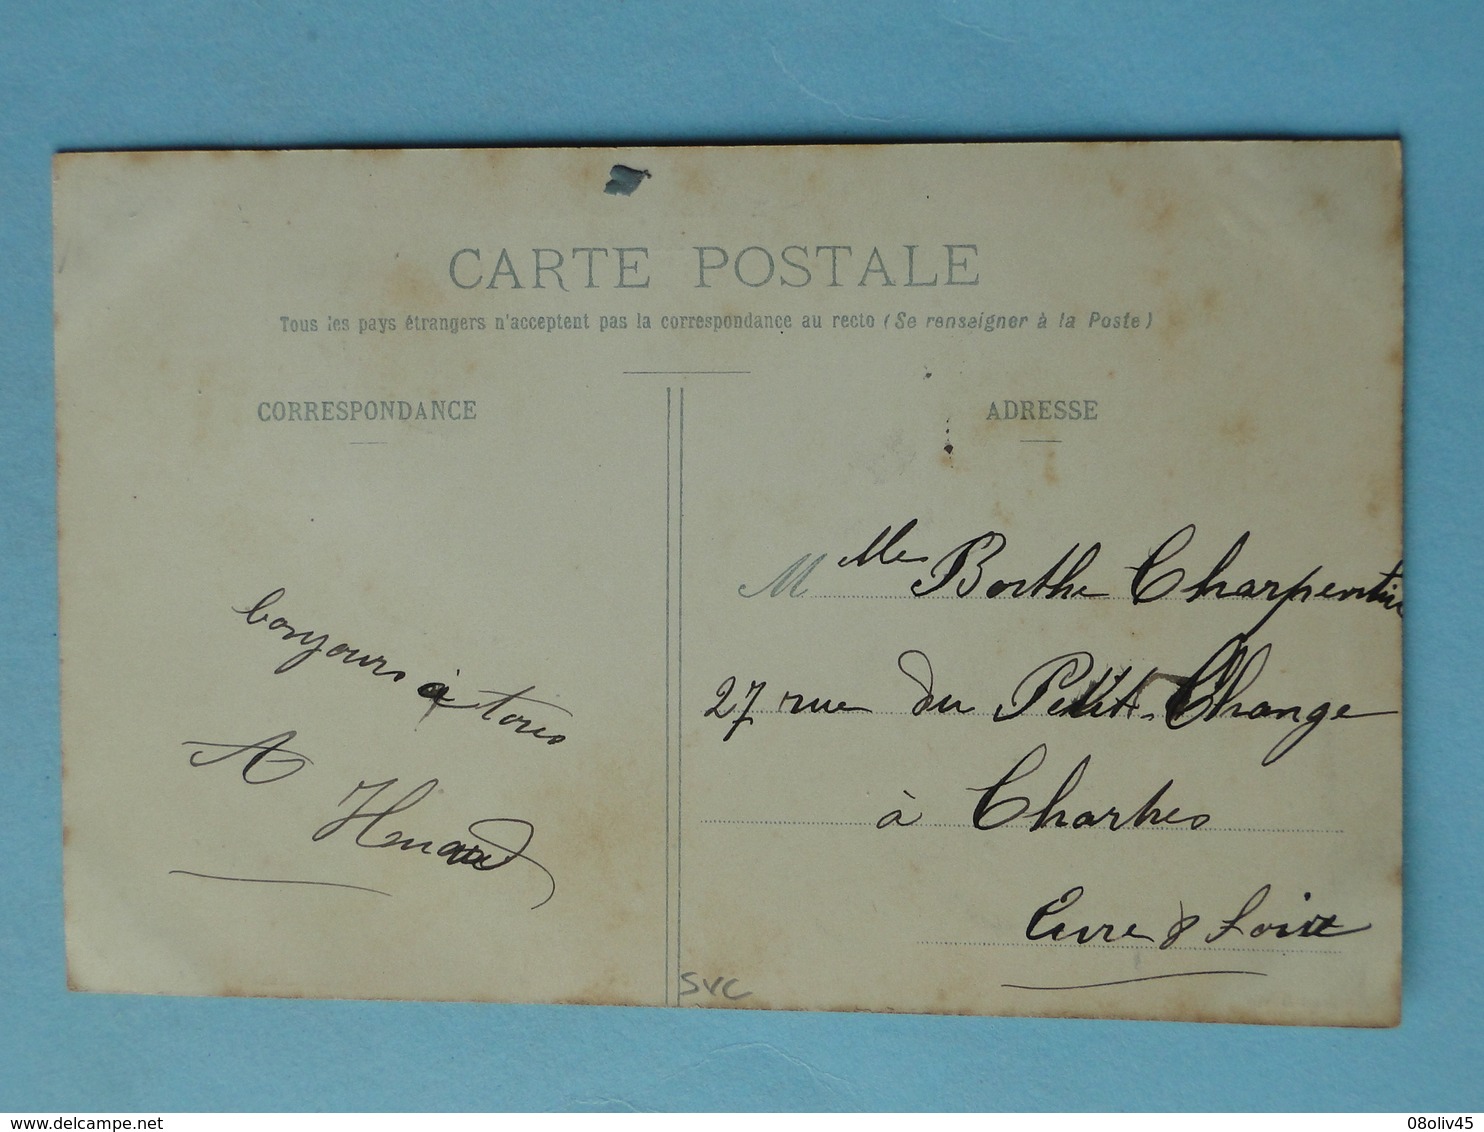 CARTE POSTALE
Tous les pays étrangers n'acceptent pas la correspondance au recto (Se renseigner à la Poste)
CORRESPONDANCE
ADRESSE
bonjours à tous
A Henard
M lle Berthe Charpentier
27 rue du Petit-Change
à Chartres
Eure & Loire
SVC
delcampe.net
08oliv45